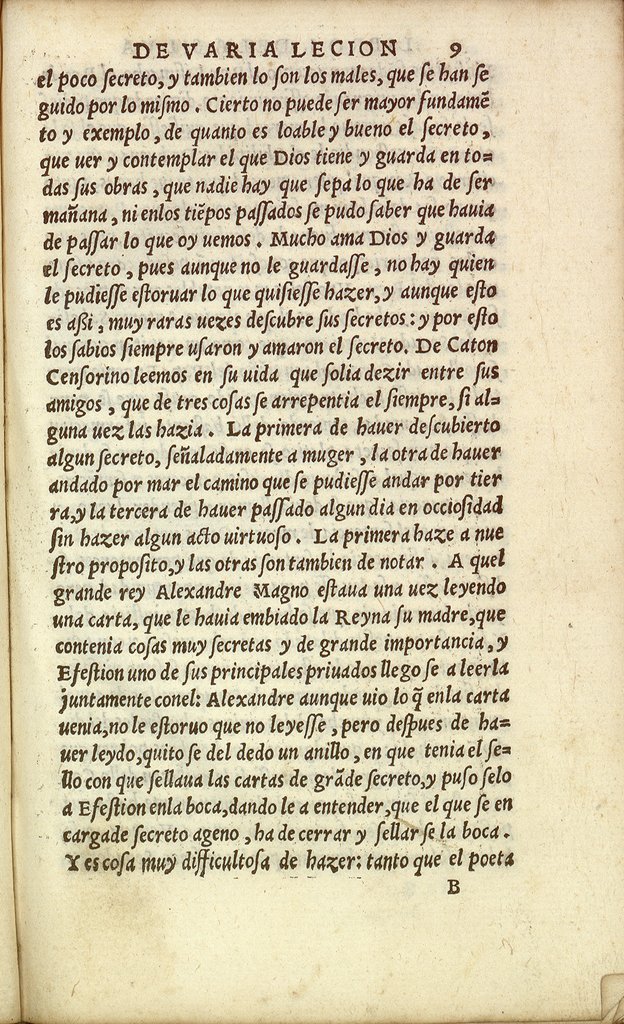 DE VARIA LECION 9
el poco ſecreto, y tambien lo ſon los males, que ſe han ſe
guido por lo miſmo. Cierto no puede ſer mayor fundamē
to y exemplo, de quanto es loable y bueno el ſecreto,
que uer y contemplar el que Dios tiene y guarda en to=
das ſus obras, que nadie hay que ſepa lo que ha de ſer
mañana, ni enlos tiēpos paſſados ſe pudo ſaber que hauia
de paſſar lo que oy uemos. Mucho ama Dios y guarda
el ſecreto, pues aunque no le guardaſſe, no hay quien
le pudieſſe eſtoruar lo que quiſieſſe hazer, y aunque eſto
es aßi, muy raras uezes deſcubre ſus ſecretos: y por eſto
los ſabios ſiempre uſaron y amaron el ſecreto. De Caton
Cenſorino leemos en ſu uida que ſolia dezir entre ſus
amigos, que de tres coſas ſe arrepentia el ſiempre, ſi al=
guna uez las hazia. La primera de hauer deſcubierto
algun ſecreto, ſeñaladamente a muger, la otra de hauer
andado por mar el camino que ſe pudieſſe andar por tier
ra, y la tercera de hauer paſſado algun dia en occioſidad
ſin hazer algun acto uirtuoſo. La primera haze a nue
ſtro propoſito, y las otras ſon tambien de notar. A quel
grande rey Alexandre Magno eſtaua una uez leyendo
una carta, que le hauia embiado la Reyna ſu madre, que
contenia coſas muy ſecretas y de grande importancia, y
Efeſtion uno de ſus principales priuados llego ſe a leerla
juntamente conel: Alexandre aunque uio lo q̄ enla carta
uenia, no le eſtoruo que no leyeſſe, pero deſpues de ha=
uer leydo, quito ſe del dedo un anillo, en que tenia el ſe=
llo con que ſellaua las cartas de grāde ſecreto, y puſo ſelo
a Efeſtion enla boca, dando le a entender, que el que ſe en
cargade ſecreto ageno, ha de cerrar y ſellar ſe la boca.
Y es coſa muy difficultoſa de hazer: tanto que el poeta
B